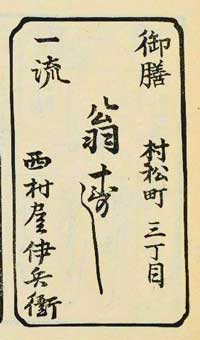 御膳
村松町 三丁目
翁
一流
西村屋伊兵衛